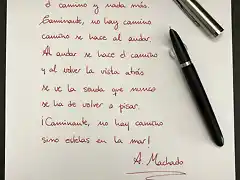 el camino y nada más.
Caminante, no hay camino
camino se hace al andar.
Al andar se hace el camino
y al volver la vista atrás
se ve la senda que nunca
se ha de volver a pisar.
¡Caminante, no hay camino
sino estelas en la mar!
A. Machado